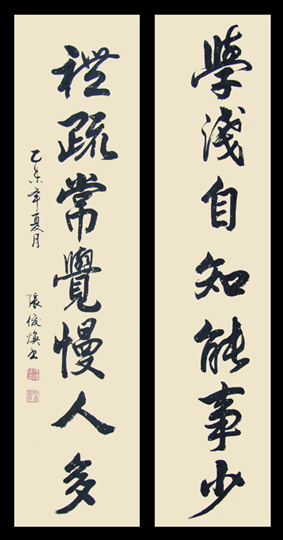 學淺自知能事少
禮疏常覺慢人多
乙年夏月
張俊煥书